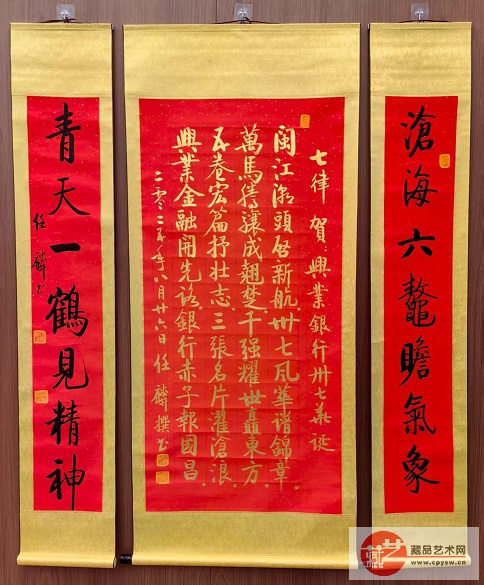 滄海六鰲瞻氣象
七律 賀興業銀行卅七華誕
閩江潮頭啓新航卅七風華譜錦章
萬馬騰驤成翹楚千强耀世矗東方
五卷宏篇抒壯志三張名片濯滄浪
興業金融開先路銀行赤子報國昌
二零二五年八月廿六日任麟撰书
青天一鶴見精神
任麟书
藏品艺术网
www.cpysw.cn